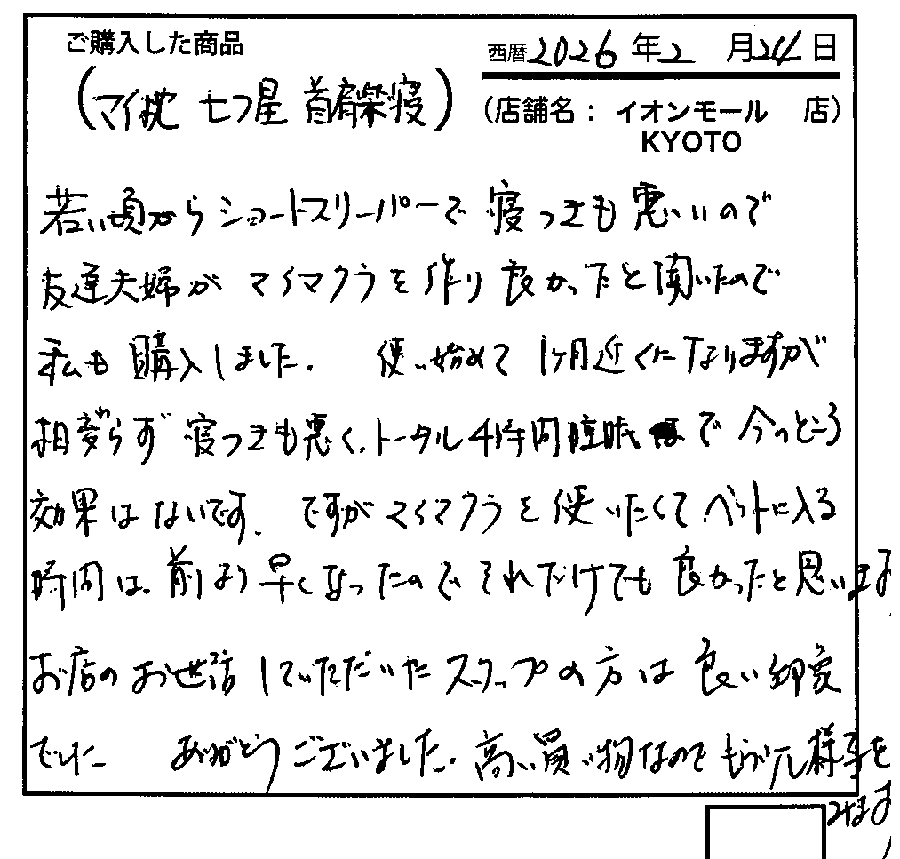 ご購入した商品
西暦2026年2月24日
(マイ枕 七つ星 首肩楽寝)
(店舗名: イオンモール 店)
KYOTO
若い頃からショートスリーパーで 寝つきも悪いので
友達夫婦が マイマクラを作り良かったと聞いたので
私も購入しました. 使い始めて 1ヶ月近くになりますが
相変らず 寝つきも悪く、トータル4時間睡眠 で 今のところ
効果はないです. ですがマイマクラを使いたくてベットに入る
時間は、前より早くなったのでそれだけでも 良かったと思います
お店のお世話していただいたスタッフの方は良い印象
でした ありがとうございました. 高い買い物なのでもう少し様子を
みます